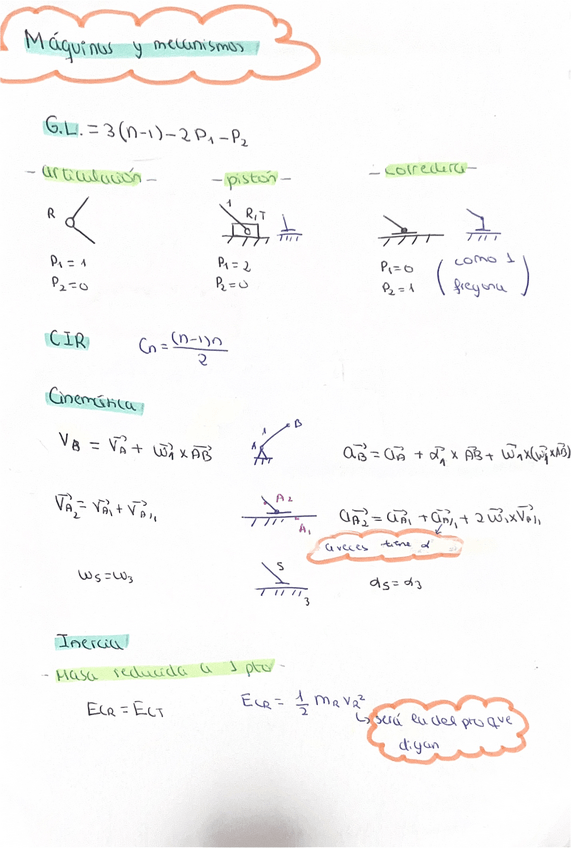 Máquinas y mecanismos
G.L. = 3(n-1) - 2P₁ - P₂
- articulación -
- pistón -
- corredera -
R
1
R,T
P₁ = 1
P₂ = 0
P₁ = 2
P₂ = 0
P₁ = 0
P₂ = 1
(como 1
fregona)
CIR
Cn = (n-1)n / 2
Cinemática
VB = VA + ω₁ x AB
A 1 B
aB = aA + α₁ x AB + ω₁ x (ω₁ x AB)
VA₂ = VA₁ + VA/₁
A₂
A₁
aA₂ = aA₁ + aA/₁ + 2ω₁ x VA/₁
aveces tiene α
ω₅ = ω₃
5
3
α₅ = α₃
Inercia
- Masa reducida a 1 pto -
EcR = EcT
EcR = 1/2 mR vR²
↳ será la del pto que
digan